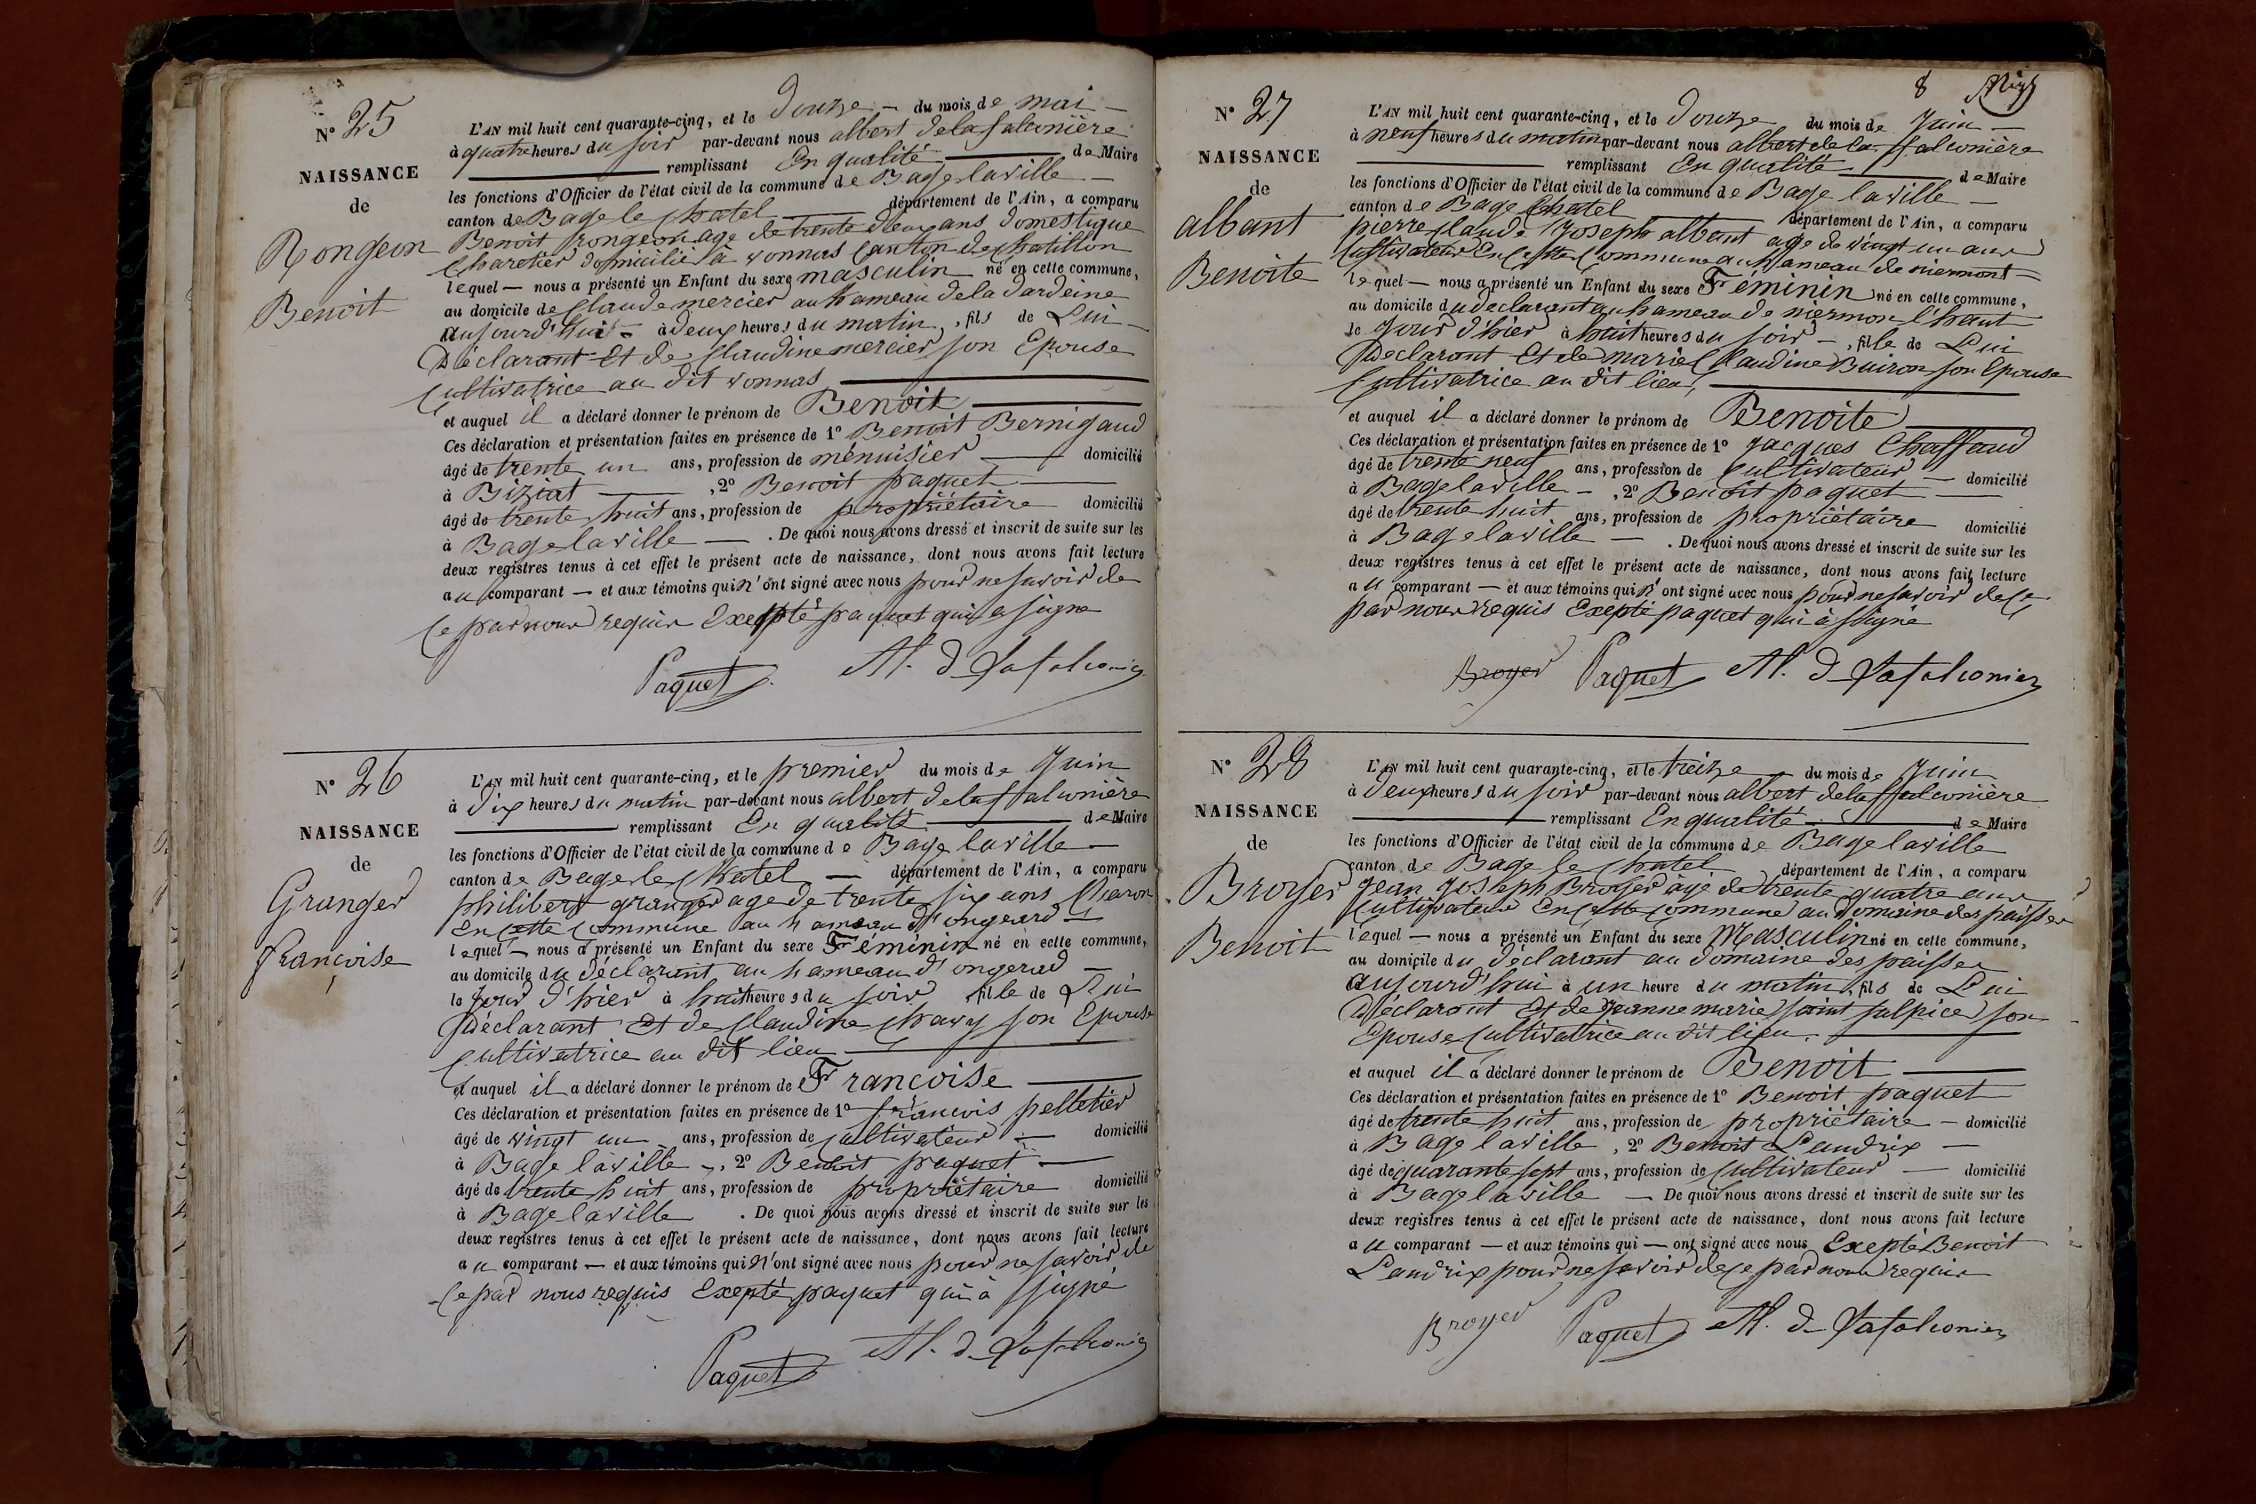 N° 25
NAISSANCE
de
Rongeon
Benoit
L'AN mil huit cent quarante-cinq, et le Douze — du mois de mai —
à quatre heures du soir par-devant nous albert delafalconière
remplissant En qualité de Maire
les fonctions d'Officier de l'état civil de la commune de Bagelaville —
canton de Bage le Chatel département de l'Ain, a comparu
Benoit Rongeon age de trente deux ans domestique
Charetier domicilié à vonnas Canton de Chatillon
lequel — nous a présenté un Enfant du sexe masculin né en cette commune,
au domicile de Claude mercier au hameau de la dardeine
aujourd'hui à deux heures du matin, fils de Lui
Déclarant Et de Claudine mercier son Epouse
Cultivatrice au dit vonnas
et auquel il a déclaré donner le prénom de Benoit
Ces déclaration et présentation faites en présence de 1° Benoit Bernigaud
âgé de trente un ans, profession de menuisier domicilié
à Biziat , 2° Benoit paquet
âgé de trente huit ans, profession de propriétaire domicilié
à Bagelaville — . De quoi nous avons dressé et inscrit de suite sur les
deux registres tenus à cet effet le présent acte de naissance, dont nous avons fait lecture
au comparant — et aux témoins qui n'ont signé avec nous pour ne savoir de
Ce par nous requis Exepté paquet qui a signé
Paquet Al. d Lafalconier
N° 26
NAISSANCE
de
Granger
françoise
L'AN mil huit cent quarante-cinq, et le premier du mois de Juin
à Dix heures du matin par-devant nous albert delaffalconière
remplissant En qualité de Maire
les fonctions d'Officier de l'état civil de la commune de Bage laville —
canton de Bage le Chatel — département de l'Ain, a comparu
philibert granger age de trente six ans Charon
En Cette Commune au hameau d'ongerard
lequel — nous a présenté un Enfant du sexe Féminin né en cette commune,
au domicile du déclarant au hameau d'ongerad —
le Jour d'hier à huit heures du soir fille de Lui
Déclarant Et de Claudine Chavy son Epouse
Cultivatrice au dit lieu
et auquel il a déclaré donner le prénom de Francoise
Ces déclaration et présentation faites en présence de 1° francois pelletier
âgé de vingt un ans, profession de Cultivateur — domicilié
à Bage laville —, 2° Benoit paquet —
âgé de trente huit ans, profession de propriétaire domicilié
à Bagelaville . De quoi nous avons dressé et inscrit de suite sur les
deux registres tenus à cet effet le présent acte de naissance, dont nous avons fait lecture
au comparant — et aux témoins qui n'ont signé avec nous pour ne savoir de
Ce par nous requis Exepté paquet qui à signé
Paquet Al. d Lafalconier
8
N° 27
NAISSANCE
de
albant
Benoite
L'AN mil huit cent quarante-cinq, et le Douze du mois de Juin —
à neuf heures du matin par-devant nous albert de la ffalconière
remplissant En qualité de Maire
les fonctions d'Officier de l'état civil de la commune de Bage laville —
canton de Bage Chatel département de l'Ain, a comparu
pierre Claude Joseph albant age de vingt un ans
Cultivateur En Cette Commune au hameau de niermont
lequel — nous a présenté un Enfant du sexe Féminin né en cette commune,
au domicile du declarant au hameau de niermon l'haut
le Jour d'hier à huit heures du soir —, fille de Lui
Declarant Et de marie Claudine Buiron son Epouse
Cultivatrice au dit lieu,
et auquel il a déclaré donner le prénom de Benoite
Ces déclaration et présentation faites en présence de 1° Jacques Chaffaud
âgé de trente neuf ans, profession de Cultivateur — domicilié
à Bagelaville —, 2° Benoit paquet
âgé de trente huit ans, profession de propriétaire domicilié
à Bagelaville — . De quoi nous avons dressé et inscrit de suite sur les
deux registres tenus à cet effet le présent acte de naissance, dont nous avons fait lecture
au comparant — et aux témoins qui n'ont signé avec nous pour ne savoir de Ce
par nous requis Exepté paquet qui à signé
Broyer Paquet Al. d Lafalconier
N° 28
NAISSANCE
de
Broyer
Benoit
L'AN mil huit cent quarante-cinq, et le treize du mois de Juin
à Deux heures du soir par-devant nous albert delaffalconière
remplissant En qualité de Maire
les fonctions d'Officier de l'état civil de la commune de Bagelaville
canton de Bage le Chatel département de l'Ain, a comparu
Jean Joseph Broyer âgé de trente quatre ans
Cultivateur En Cette Commune au Domaine des paisses
lequel — nous a présenté un Enfant du sexe Masculin né en cette commune,
au domicile du déclarant au domaine des paisses
aujourd'hui à un heure du matin, fils de Lui
Déclarant Et de Jeanne marie saint sulpice son
Epouse Cultivatrice au dit lieu.
et auquel il a déclaré donner le prénom de Benoit
Ces déclaration et présentation faites en présence de 1° Benoit paquet
âgé de trente huit ans, profession de propriétaire — domicilié
à Bage laville , 2° Benoit Landrix —
âgé de quarante sept ans, profession de Cultivateur — domicilié
à Bagelaville — De quoi nous avons dressé et inscrit de suite sur les
deux registres tenus à cet effet le présent acte de naissance, dont nous avons fait lecture
au comparant — et aux témoins qui — ont signé avec nous Exepté Benoit
Landrix pour ne savoir de Ce par nous requis
Broyer Paquet Al. d Lafalconier